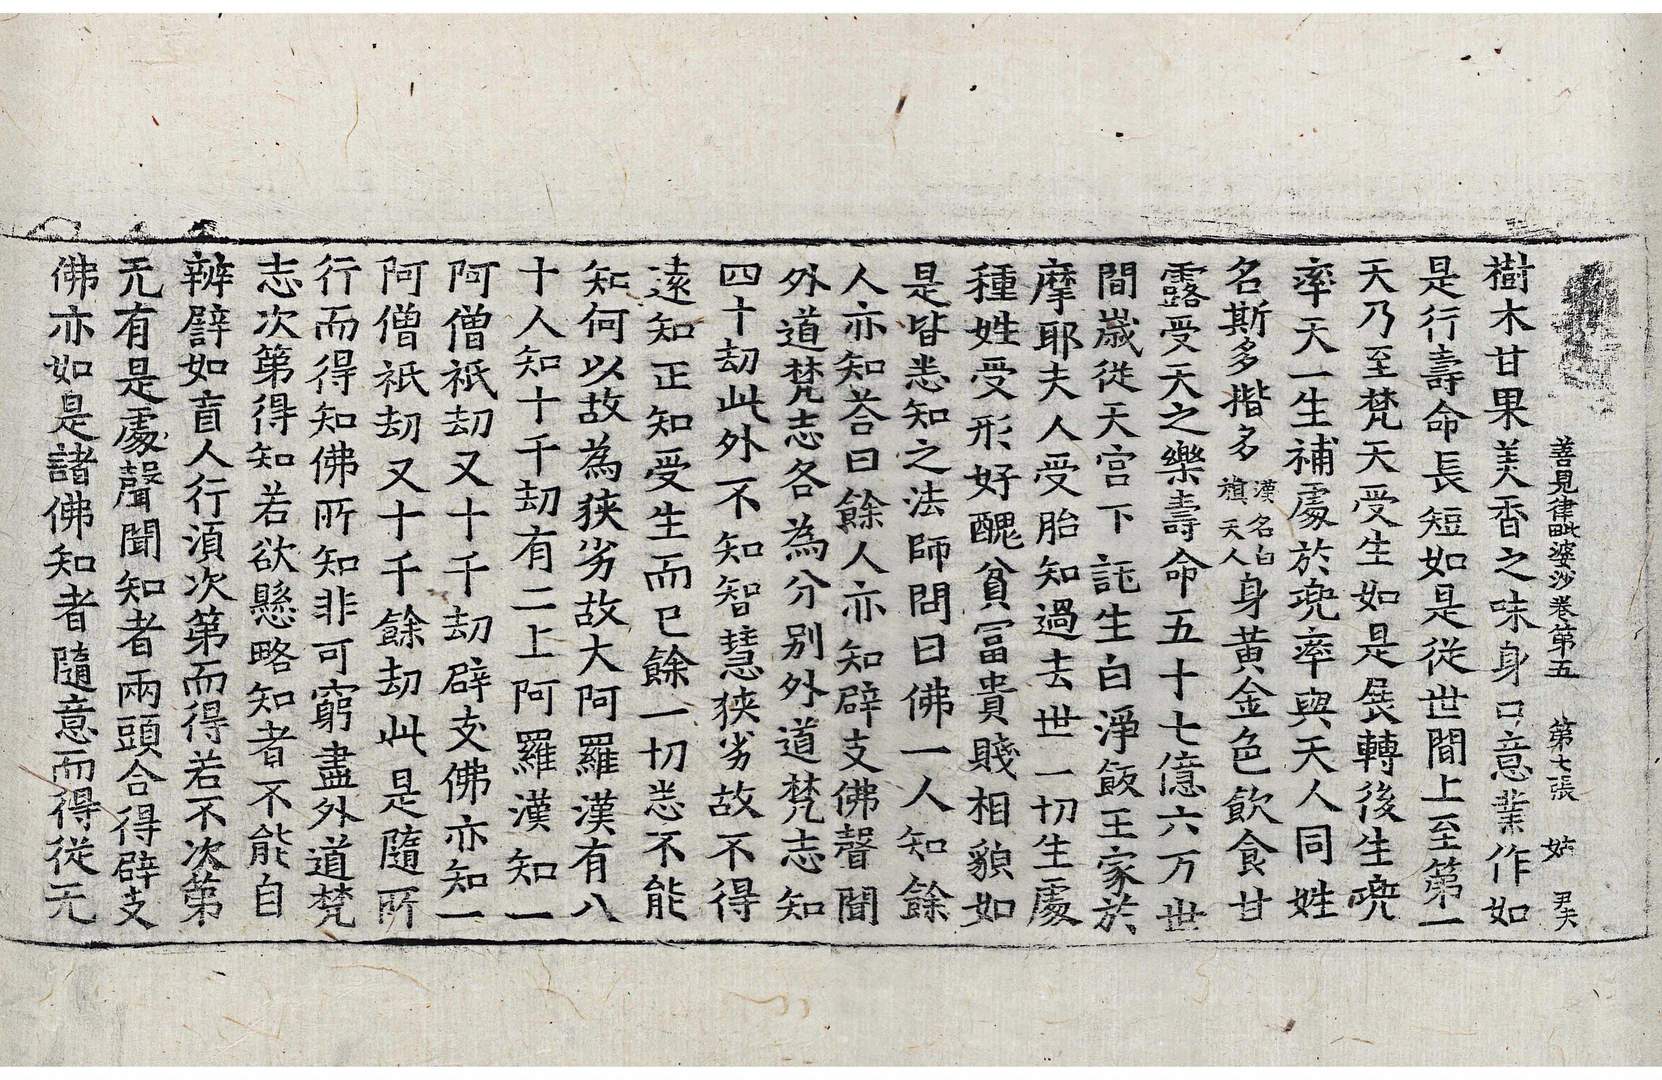 善見律毗婆沙卷第五 第七張 姑 尹夫
樹木甘果美香之味身口意業作如
是行壽命長短如是從世間上至第一
天乃至梵天受生如是展轉後生兜
率天一生補處於兜率與天人同姓
名斯多揩多漢名白旗天人身黃金色飲食甘
露受天之樂壽命五十七億六万世
間歲從天宮下託生白淨飯王家於
摩耶夫人受胎知過去世一切生處
種姓受形好醜貧冨貴賤相貌如
是皆悉知之法師問曰佛一人知餘
人亦知荅曰餘人亦知辟支佛聲聞
外道梵志各為分别外道梵志知
四十劫此外不知智慧狹劣故不得
遠知正知受生而已餘一切悉不能
知何以故為狹劣故大阿羅漢有八
十人知十千劫有二上阿羅漢知一
阿僧祇劫又十千劫辟支佛亦知一
阿僧祇劫又十千餘劫此是隨所
行而得知佛所知非可窮盡外道梵
志次第得知若欲懸略知者不能自
辨譬如盲人行湏次第而得若不次第
无有是處聲聞知者兩頭合得辟支
佛亦如是諸佛知者隨意而得從无